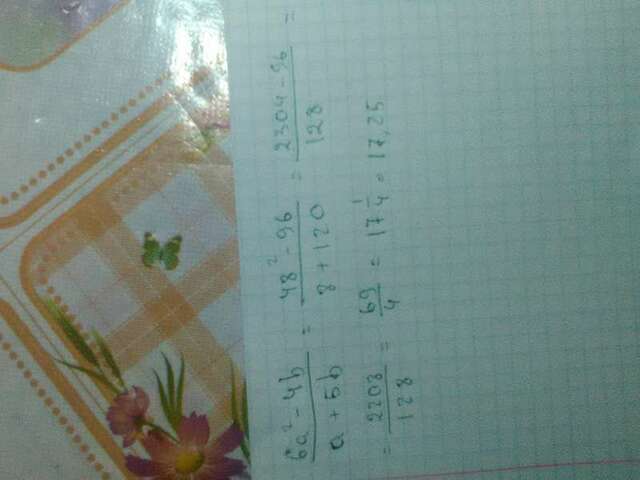 6a² - 4b / a + 5b = 48² - 96 / 8 + 120 = 2304 - 96 / 128 =
= 2208 / 128 = 69 / 4 = 17 1/4 = 17,25